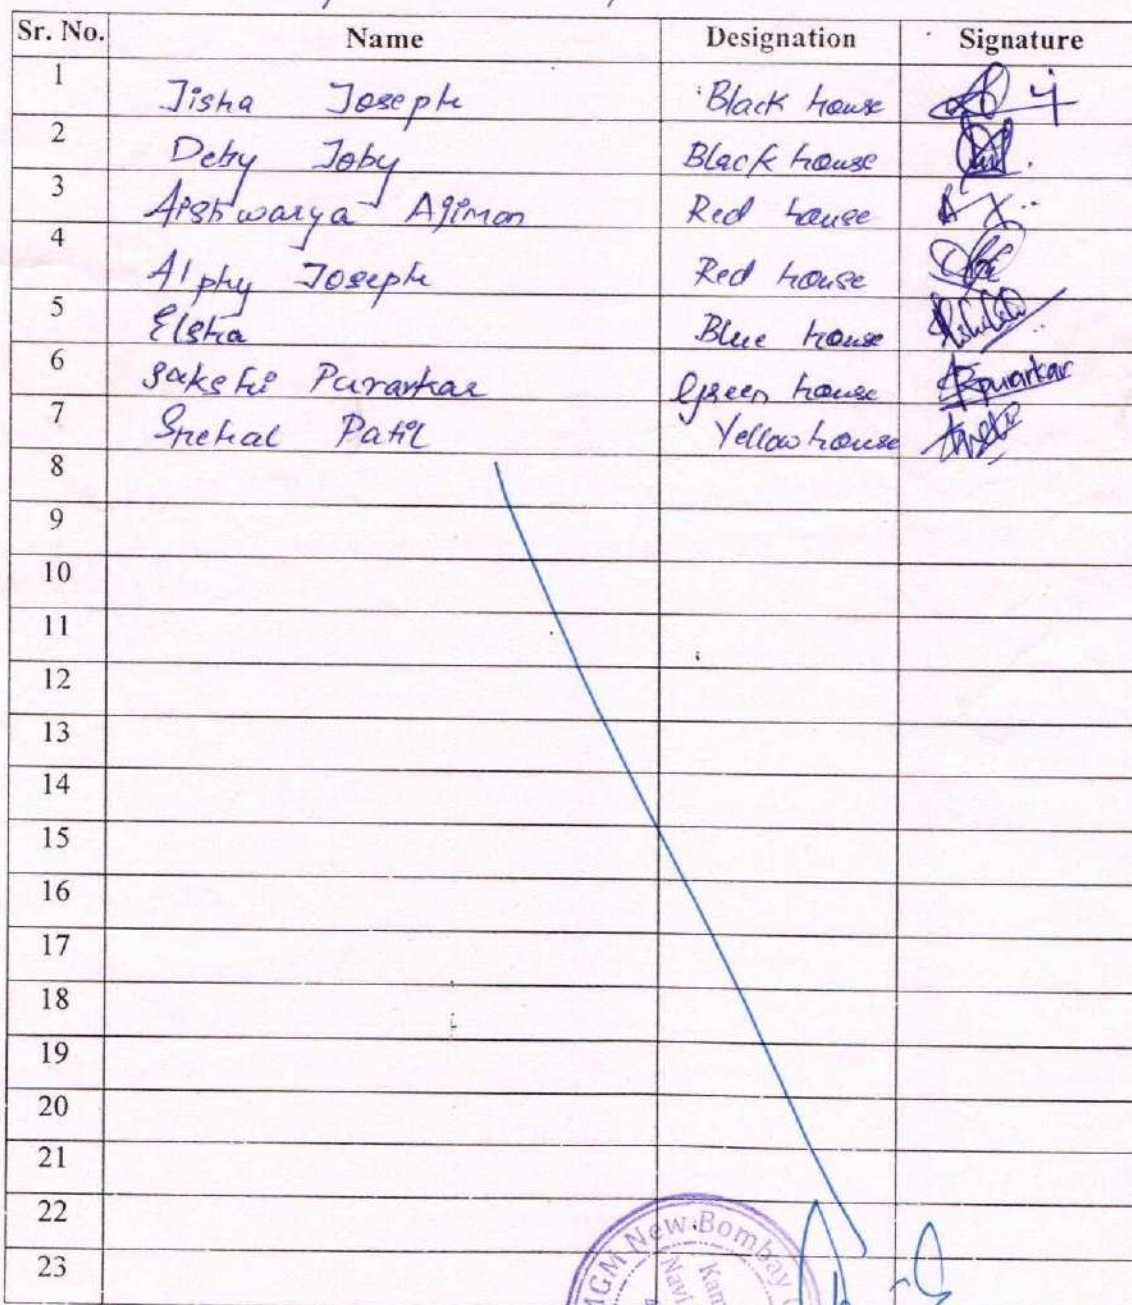 Sr. No. Name Designation Signature
1 Jisha Joseph Black house
2 Deby Joby Black house
3 Aishwarya Ajimon Red house
4 Alphy Joseph Red house
5 Elsha Blue house
6 Sakshi Purarkar Green house Spurarkar
7 Snehal Patil Yellow house
8
9
10
11
12
13
14
15
16
17
18
19
20
21
22
23
MGM New Bombay
Kam
Navi